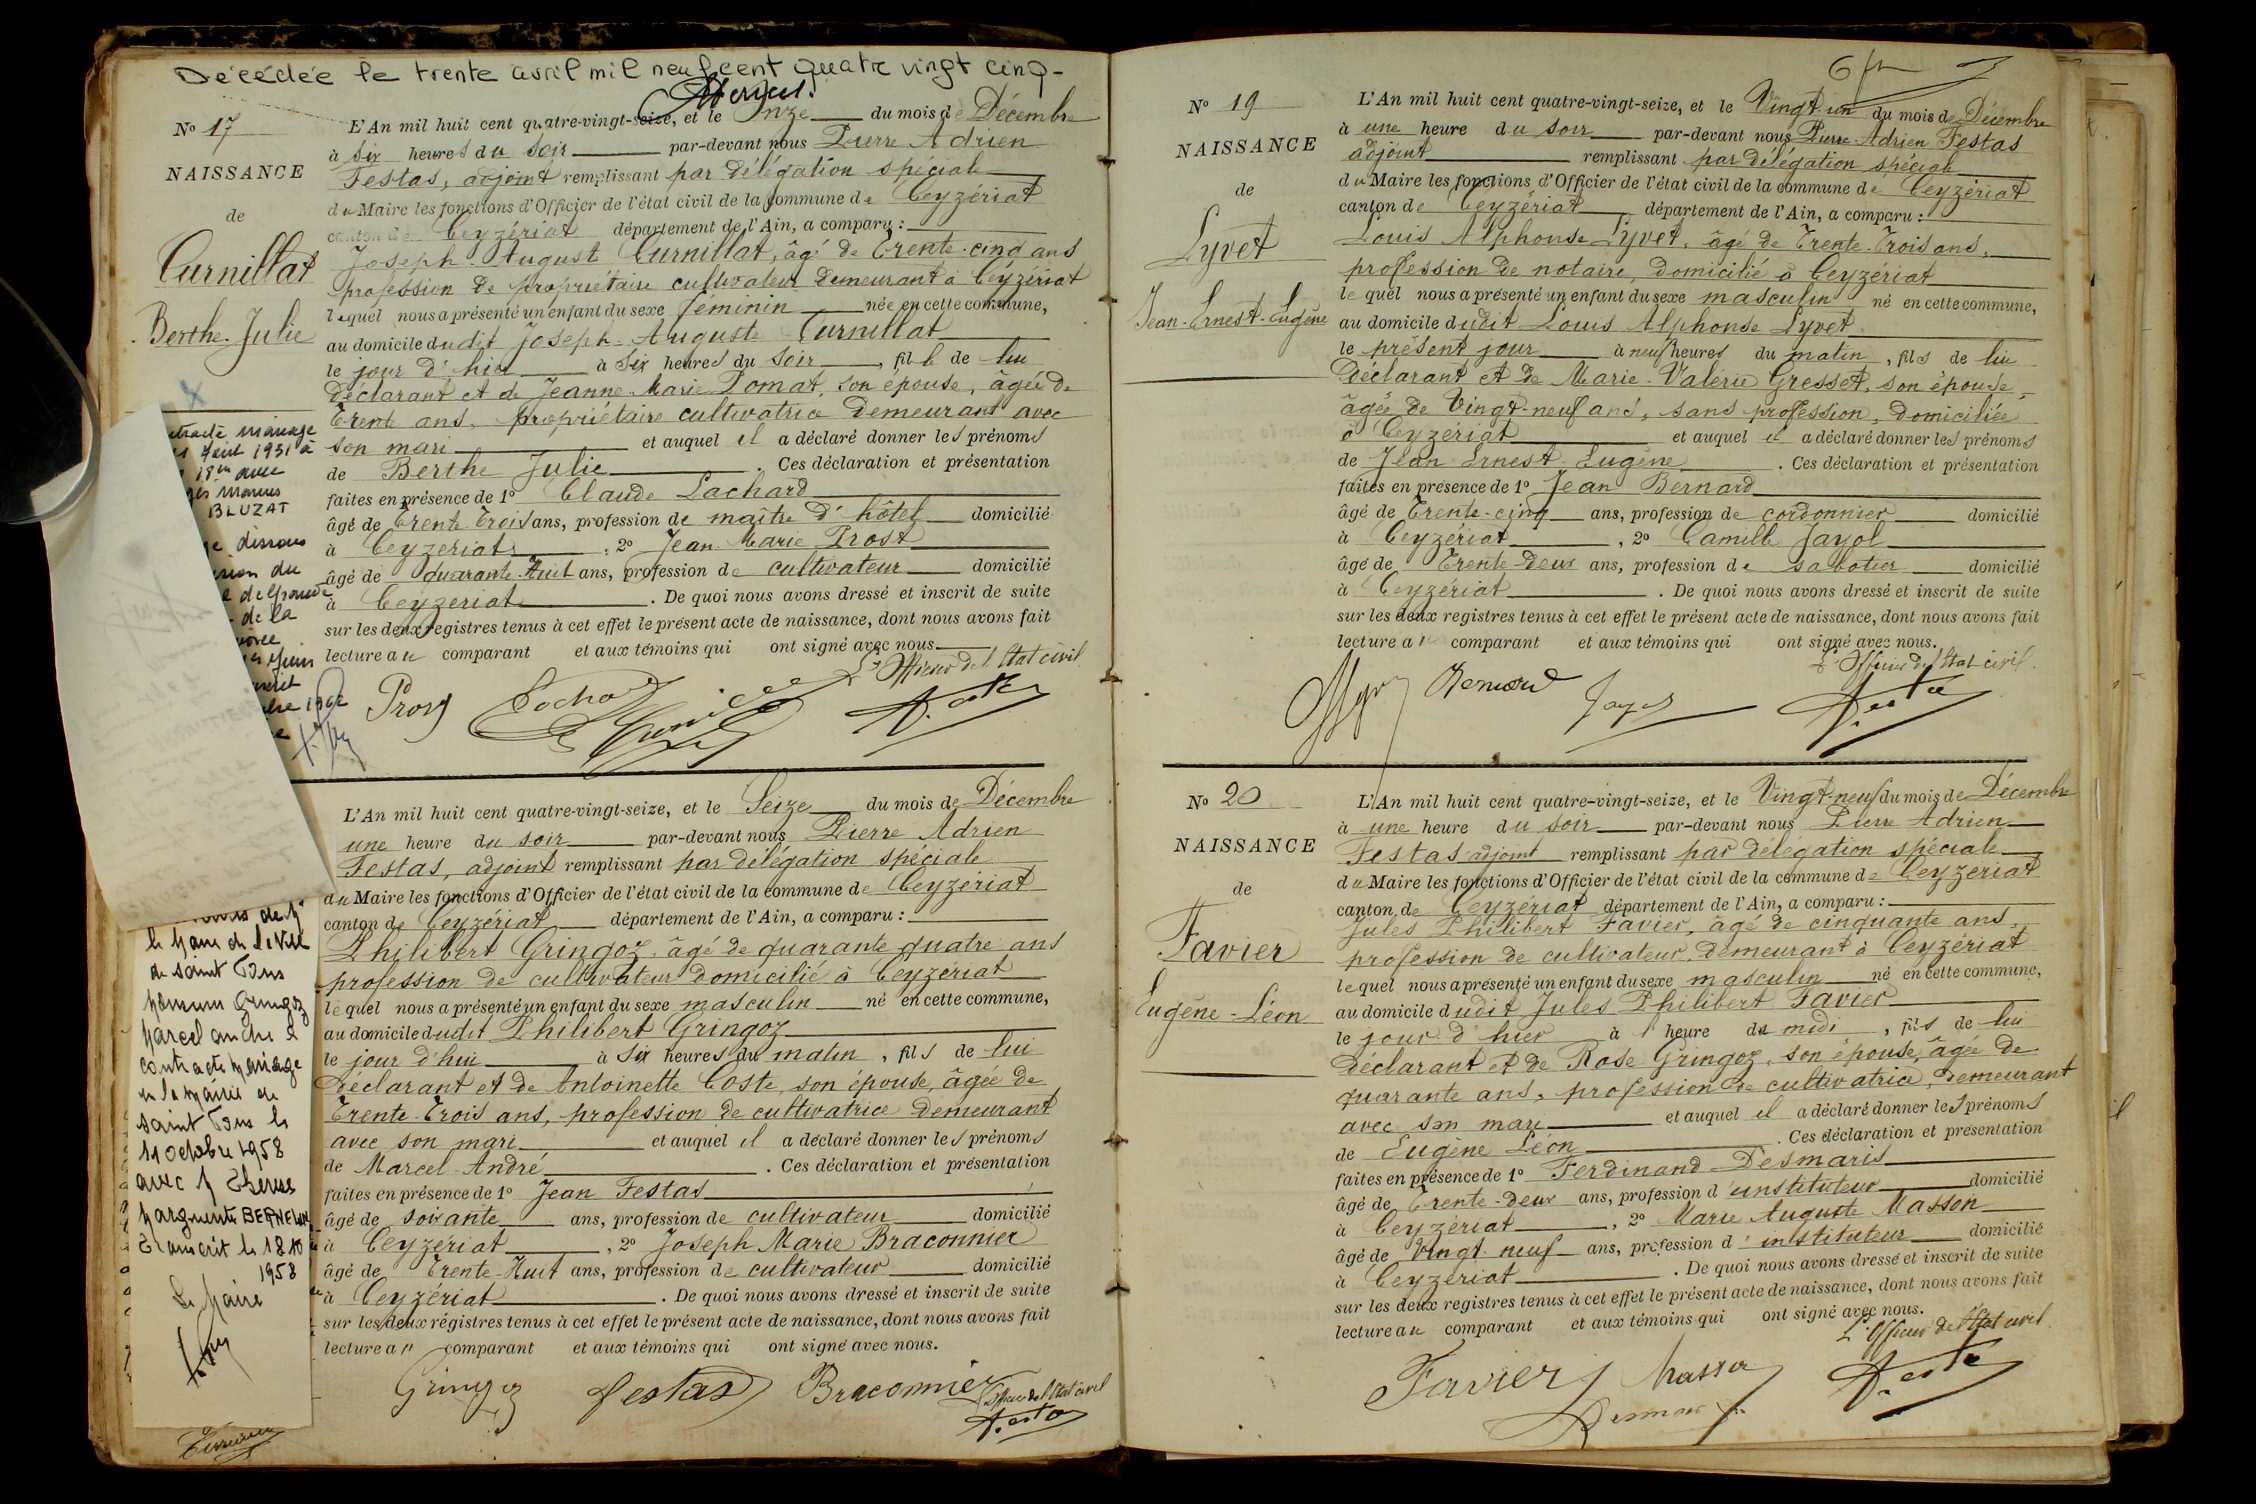 Décédée le trente avril mil neuf cent quatre vingt cinq -
No 17
NAISSANCE
de
Curnillat
Berthe-Julie
L'An mil huit cent quatre-vingt-seize, et le Onze du mois de Décembre
à six heures du soir par-devant nous Pierre Adrien
Festas, adjoint remplissant par délégation spéciale
du Maire les fonctions d'Officier de l'état civil de la commune de Ceyzériat
canton de Ceyzériat département de l'Ain, a comparu :
Joseph-August Curnillat, âgé de Trente-cinq ans
profession de propriétaire cultivateur demeurant à Ceyzériat
lequel nous a présenté un enfant du sexe féminin née en cette commune,
au domicile dudit Joseph-Auguste Curnillat
le jour d'hier à six heures du soir, fille de lui
déclarant et de Jeanne-Marie Pomat, son épouse, âgée de
Trente ans, propriétaire cultivatrice demeurant avec
son mari et auquel il a déclaré donner les prénoms
de Berthe Julie. Ces déclaration et présentation
faites en présence de 1º Claude Lachard
âgé de Trente Trois ans, profession de maître d'hôtel domicilié
à Ceyzériat, 2º Jean Marie Prost
âgé de quarante-huit ans, profession de cultivateur domicilié
à Ceyzériat. De quoi nous avons dressé et inscrit de suite
sur les deux registres tenus à cet effet le présent acte de naissance, dont nous avons fait
lecture au comparant et aux témoins qui ont signé avec nous.
L'Officier de l'Etat civil
Prost
mariage
1931 à
avec
BLUZAT
dissous
du
de la
1962
L'An mil huit cent quatre-vingt-seize, et le Seize du mois de Décembre
une heure du soir par-devant nous Pierre Adrien
Festas, adjoint remplissant par délégation spéciale
du Maire les fonctions d'Officier de l'état civil de la commune de Ceyzériat
canton de Ceyzériat département de l'Ain, a comparu :
Philibert Gringoz, âgé de quarante quatre ans
profession de cultivateur domicilié à Ceyzériat
lequel nous a présenté un enfant du sexe masculin né en cette commune,
au domicile dudit Philibert Gringoz
le jour d'hui à six heures du matin, fils de lui
déclarant et de Antoinette Coste, son épouse, âgée de
Trente-Trois ans, profession de cultivatrice demeurant
avec son mari et auquel il a déclaré donner les prénoms
de Marcel-André. Ces déclaration et présentation
faites en présence de 1º Jean Festas
âgé de soixante ans, profession de cultivateur domicilié
à Ceyzériat, 2º Joseph Marie Braconnier
âgé de Trente-Huit ans, profession de cultivateur domicilié
à Ceyzériat. De quoi nous avons dressé et inscrit de suite
sur les deux régistres tenus à cet effet le présent acte de naissance, dont nous avons fait
lecture au comparant et aux témoins qui ont signé avec nous.
Gringoz Festas Braconnier
L'Officier de l'Etat civil
Festas
le Maire de
de Saint
Gringoz
Marcel andré a
contracté mariage
à la Mairie de
Saint le
11 octobre 1958
avec
Marguerite
Transcrit le 18 10
1958
Le Maire
No 19
NAISSANCE
de
Lyvet
Jean-Ernest-Eugène
L'An mil huit cent quatre-vingt-seize, et le Vingt un du mois de Décembre
à une heure du soir par-devant nous Pierre Adrien Festas
adjoint remplissant par délégation spéciale
du Maire les fonctions d'Officier de l'état civil de la commune de Ceyzériat
canton de Ceyzériat département de l'Ain, a comparu :
Louis Alphonse Lyvet, âgé de Trente-Trois ans,
profession de notaire, domicilié à Ceyzériat
le quel nous a présenté un enfant du sexe masculin né en cette commune,
au domicile dudit Louis Alphonse Lyvet
le présent jour à neuf heures du matin, fils de lui
déclarant et de Marie-Valérie Gresset, son épouse,
âgée de Vingt-neuf ans, sans profession, domiciliée
à Ceyzériat et auquel il a déclaré donner les prénoms
de Jean Ernest Eugène. Ces déclaration et présentation
faites en présence de 1º Jean Bernard
âgé de Trente-cinq ans, profession de cordonnier domicilié
à Ceyzériat, 2º Camille Jayol
âgé de Trente-deux ans, profession de sabotier domicilié
à Ceyzériat. De quoi nous avons dressé et inscrit de suite
sur les deux registres tenus à cet effet le présent acte de naissance, dont nous avons fait
lecture au comparant et aux témoins qui ont signé avec nous.
L'Officier de l'Etat civil.
Bernard
No 20
NAISSANCE
de
Favier
Eugène-Léon
L'An mil huit cent quatre-vingt-seize, et le Vingt-neuf du mois de Décembre
à une heure du soir par-devant nous Pierre Adrien
Festas adjoint remplissant par délégation spéciale
du Maire les fonctions d'Officier de l'état civil de la commune de Ceyzériat
canton de Ceyzériat département de l'Ain, a comparu :
Jules Philibert Favier, âgé de cinquante ans,
profession de cultivateur, demeurant à Ceyzériat
lequel nous a présenté un enfant du sexe masculin né en cette commune,
au domicile dudit Jules Philibert Favier
le jour d'hier à 1 heure du midi, fils de lui
déclarant et de Rose Gringoz, son épouse, âgée de
quarante ans, profession de cultivatrice, demeurant
avec son mari et auquel il a déclaré donner les prénoms
de Eugène Léon. Ces déclaration et présentation
faites en présence de 1º Ferdinand Desmaris
âgé de Trente-deux ans, profession d'instituteur domicilié
à Ceyzériat, 2º Marie Auguste Masson
âgé de Vingt-neuf ans, profession d'instituteur domicilié
à Ceyzériat. De quoi nous avons dressé et inscrit de suite
sur les deux registres tenus à cet effet le présent acte de naissance, dont nous avons fait
lecture au comparant et aux témoins qui ont signé avec nous.
L'Officier de l'Etat civil.
Favier Masson